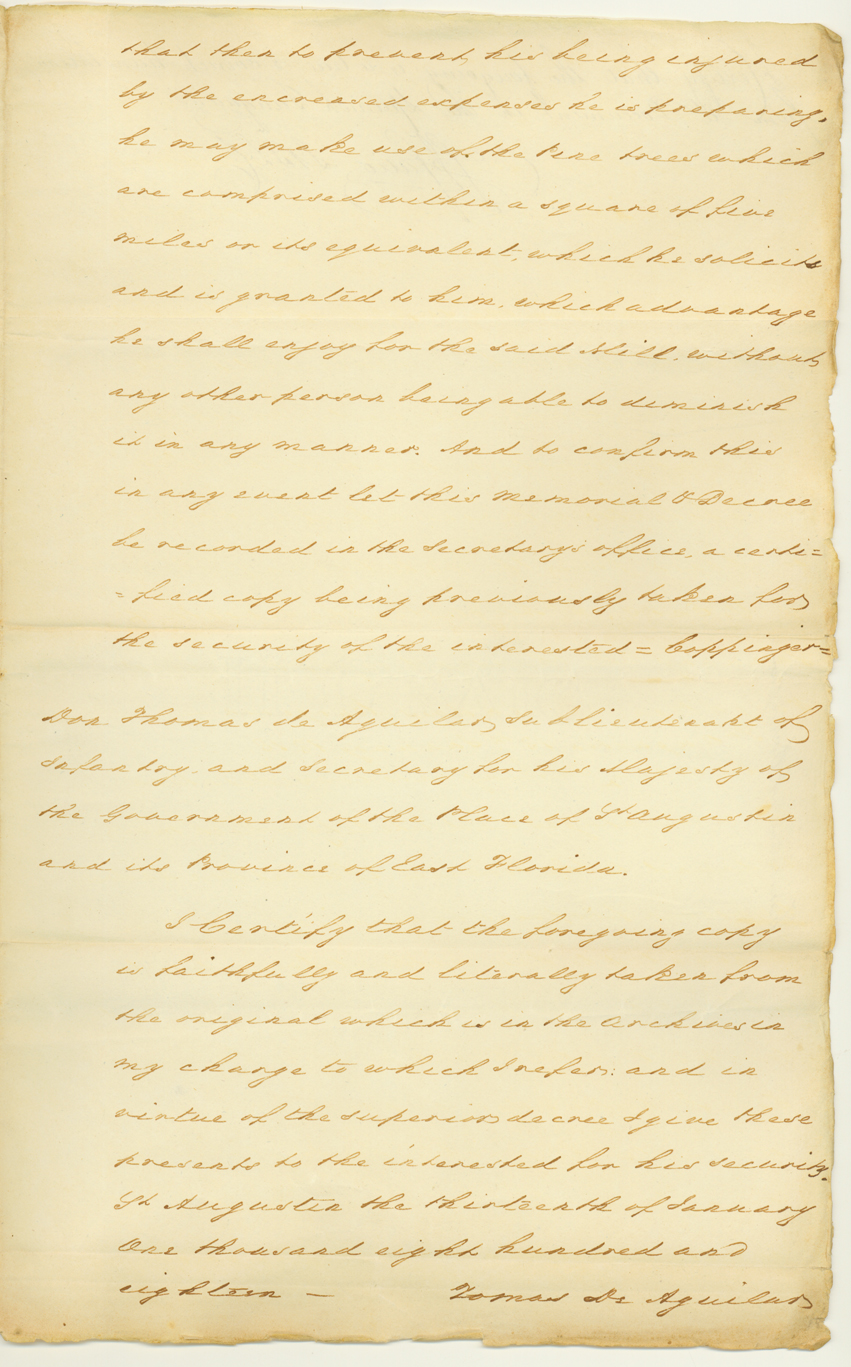 that then to prevent, his being injured
by the encreased expenses he is preparing,
he may make use of the Pine trees which
are comprised within a square of five
miles or its equivalent, which he solicits
and is granted to him, which advantage
he shall enjoy for the said Mill, without
any other person being able to diminish
it in any manner. And to confirm this
in any event let this Memorial & Decree
be recorded in the Secretary's office, a certi=
=fied copy being previously taken for
the security of the interested = Coppinger =
Don Thomas de Aguilar, Sublieutenant of
Infantry, and Secretary for his Majesty of
the Government of the Place of St Augustin
and its Province of East Florida.
I Certify that the foregoing copy
is faithfully and literally taken from
the original which is in the Archives in
my charge to which I refer: and in
virtue of the superior decree I give these
presents to the interested for his security.
St Augustin the thirteenth of January
One thousand eight hundred and
eighteen — Tomas De Aguilar